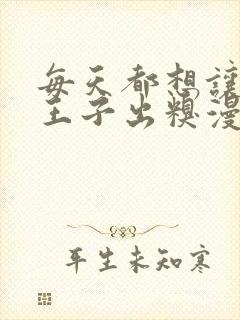 每天都想讓
王子出糗漫
平生未知寒